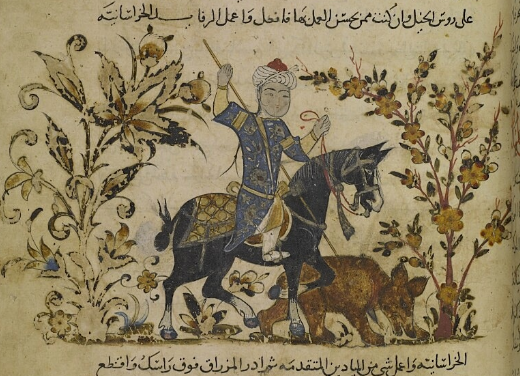 على روس الخيل وان كنت ممن يحسن العمل بها فافعل واعمل الخراسانيه
الخراسانيه واعمل شي من الميادين المتقدمه ثم ادر المزراق فوق راسك واقتطع